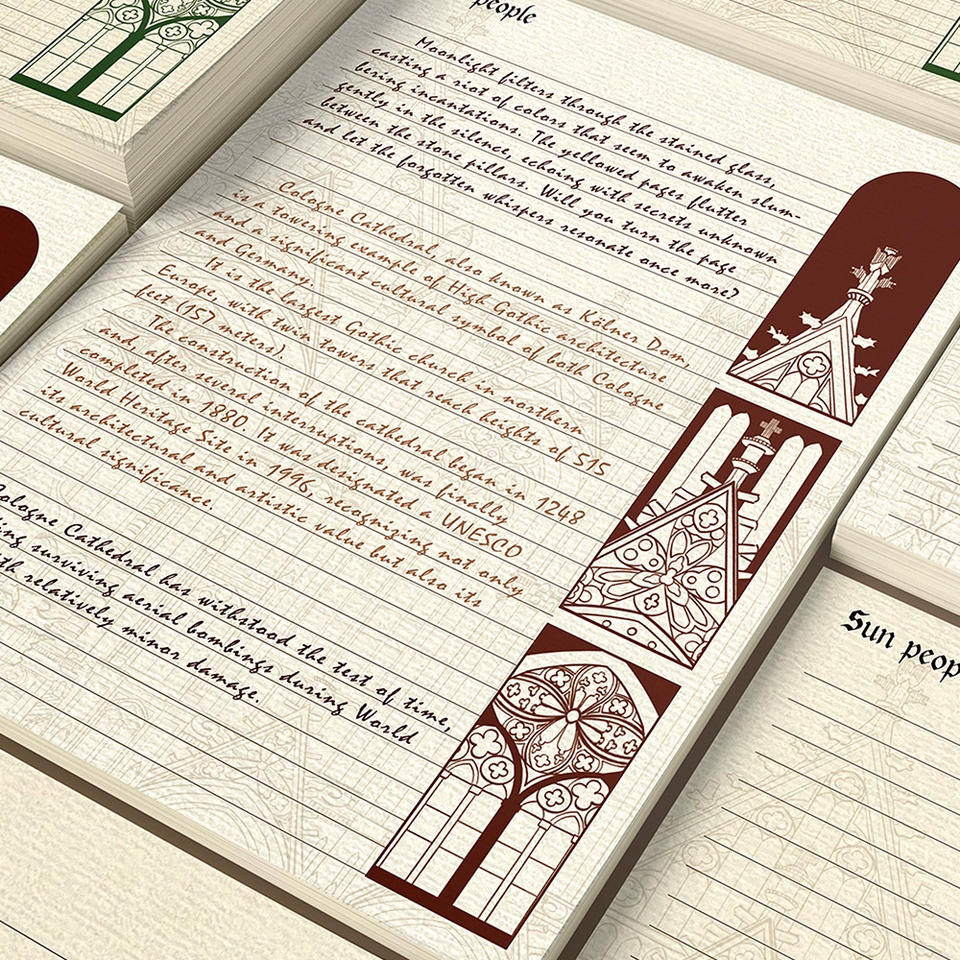 people
Moonlight filters through the stained glass,
casting a riot of colors that seem to awaken slum-
bering incantations. The yellowed pages flutter
gently in the silence, echoing with secrets unknown
between the stone pillars. Will you turn the page
and let the forgotten whispers resonate once more?
Cologne Cathedral also known as Kölner Dom,
is a towering example of High Gothic architecture
and a significant cultural symbol of both Cologne
and Germany.
It is the largest Gothic church in northern
Europe, with twin towers that reach heights of 515
feet (157 meters).
The construction of the cathedral began in 1248
and, after several interruptions, was finally
completed in 1880. It was designated a UNESCO
World Heritage Site in 1996, recognizing not only
its architectural and artistic value but also its
cultural significance.
Cologne Cathedral has withstood the test of time,
ing surviving aerial bombings during World
with relatively minor damage.
Sun peop